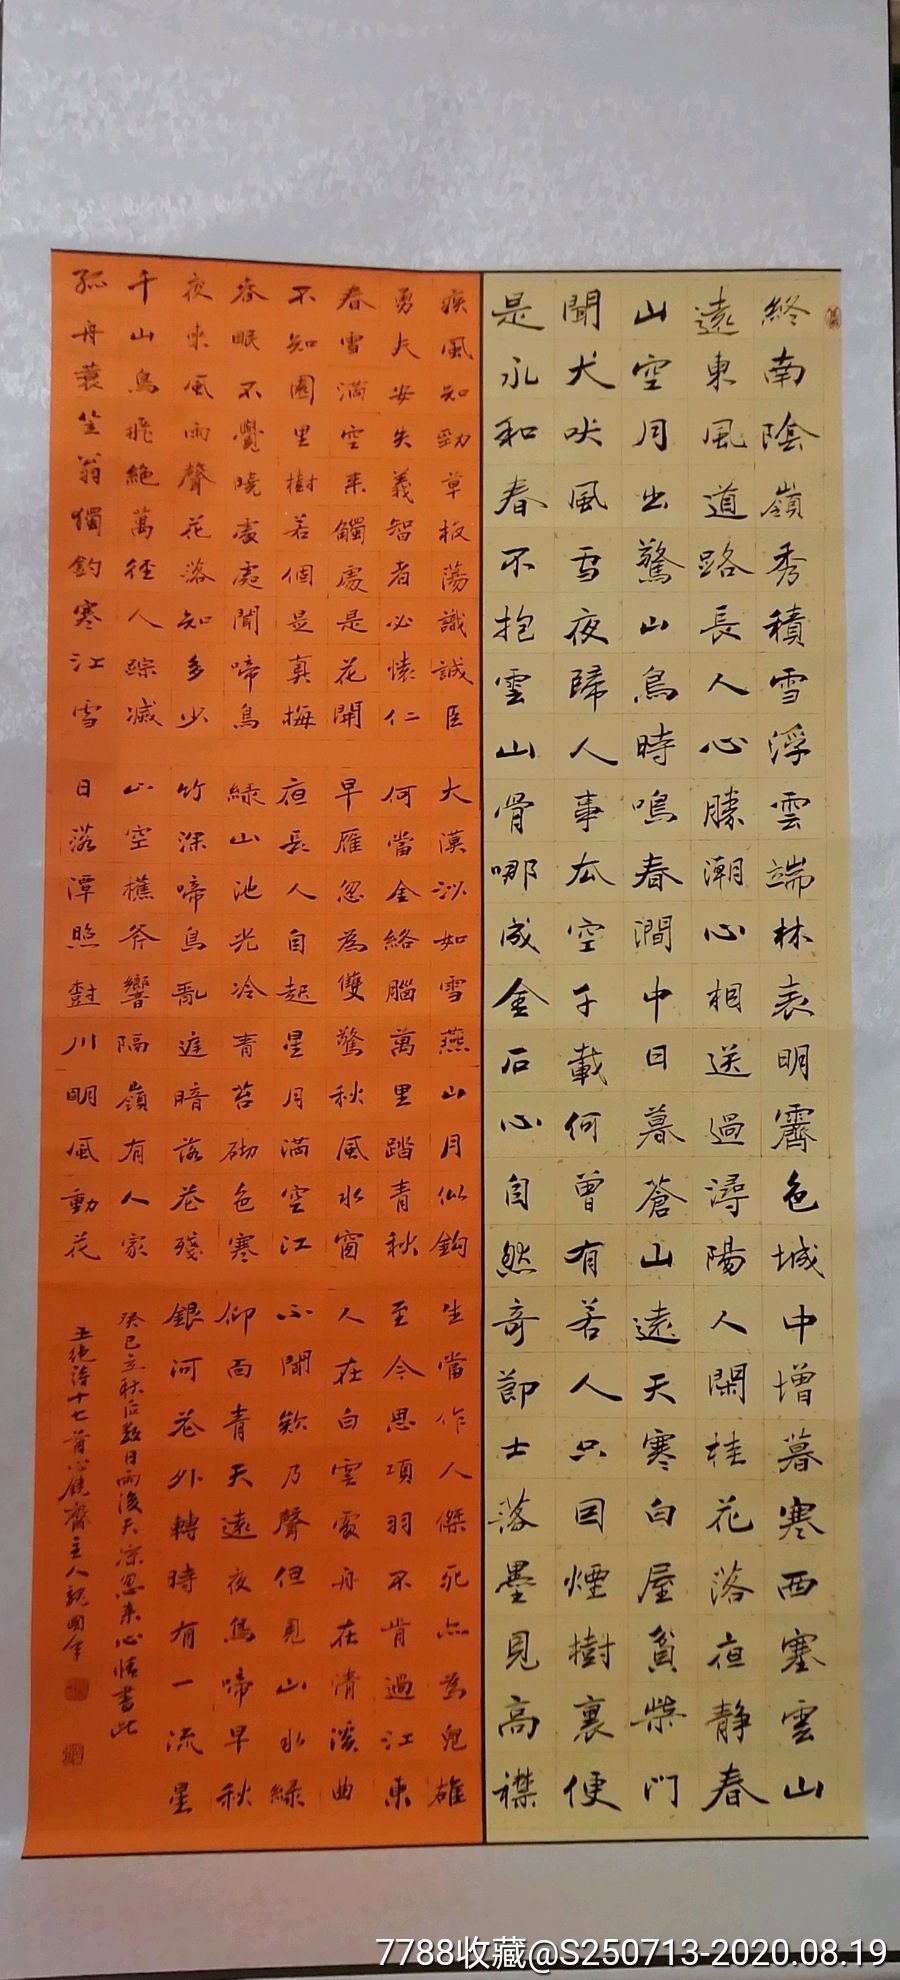 終南陰嶺秀積雪浮雲端林表明霽色城中增暮寒西塞雲山
遠東風道路長人心勝潮心相送過潯陽人閑桂花落夜靜春
山空月出驚山鳥時鳴春澗中日暮蒼山遠天寒白屋貧柴門
聞犬吠風雪夜歸人事去空千載何曾有若人只因煙樹裏便
是永和春不抱雲山骨哪成金石心自然奇節士落墨見高襟
疾風知勁草板蕩識誠臣
勇夫安失義智者必懷仁
春雪滿空來觸處是花開
不知園里樹若個是真梅
春眠不覺曉處處聞啼鳥
夜來風雨聲花落知多少
千山鳥飛絕萬徑人踪滅
孤舟蓑笠翁獨釣寒江雪
大漠沙如雪燕山月似鈎
何當金絡腦萬里踏青秋
早雁忽為雙驚秋風水窗
夜長人自起星月滿空江
綠山池光冷青苔砌色寒
竹深啼鳥亂庭暗落花殘
山空樵斧響隔嶺有人家
日落潭照樹川明風動花
生當作人傑死亦為鬼雄
至今思項羽不肯過江東
人在白雲處舟在清溪曲
不聞欸乃聲但見山水綠
仰面青天遠夜鳥啼早秋
銀河花外轉時有一流星
癸巳立秋后數日雨後天涼忽來心情書此
五絕詩十七首心鏡齋主人魏國
7788收藏@S250713-2020.08.19